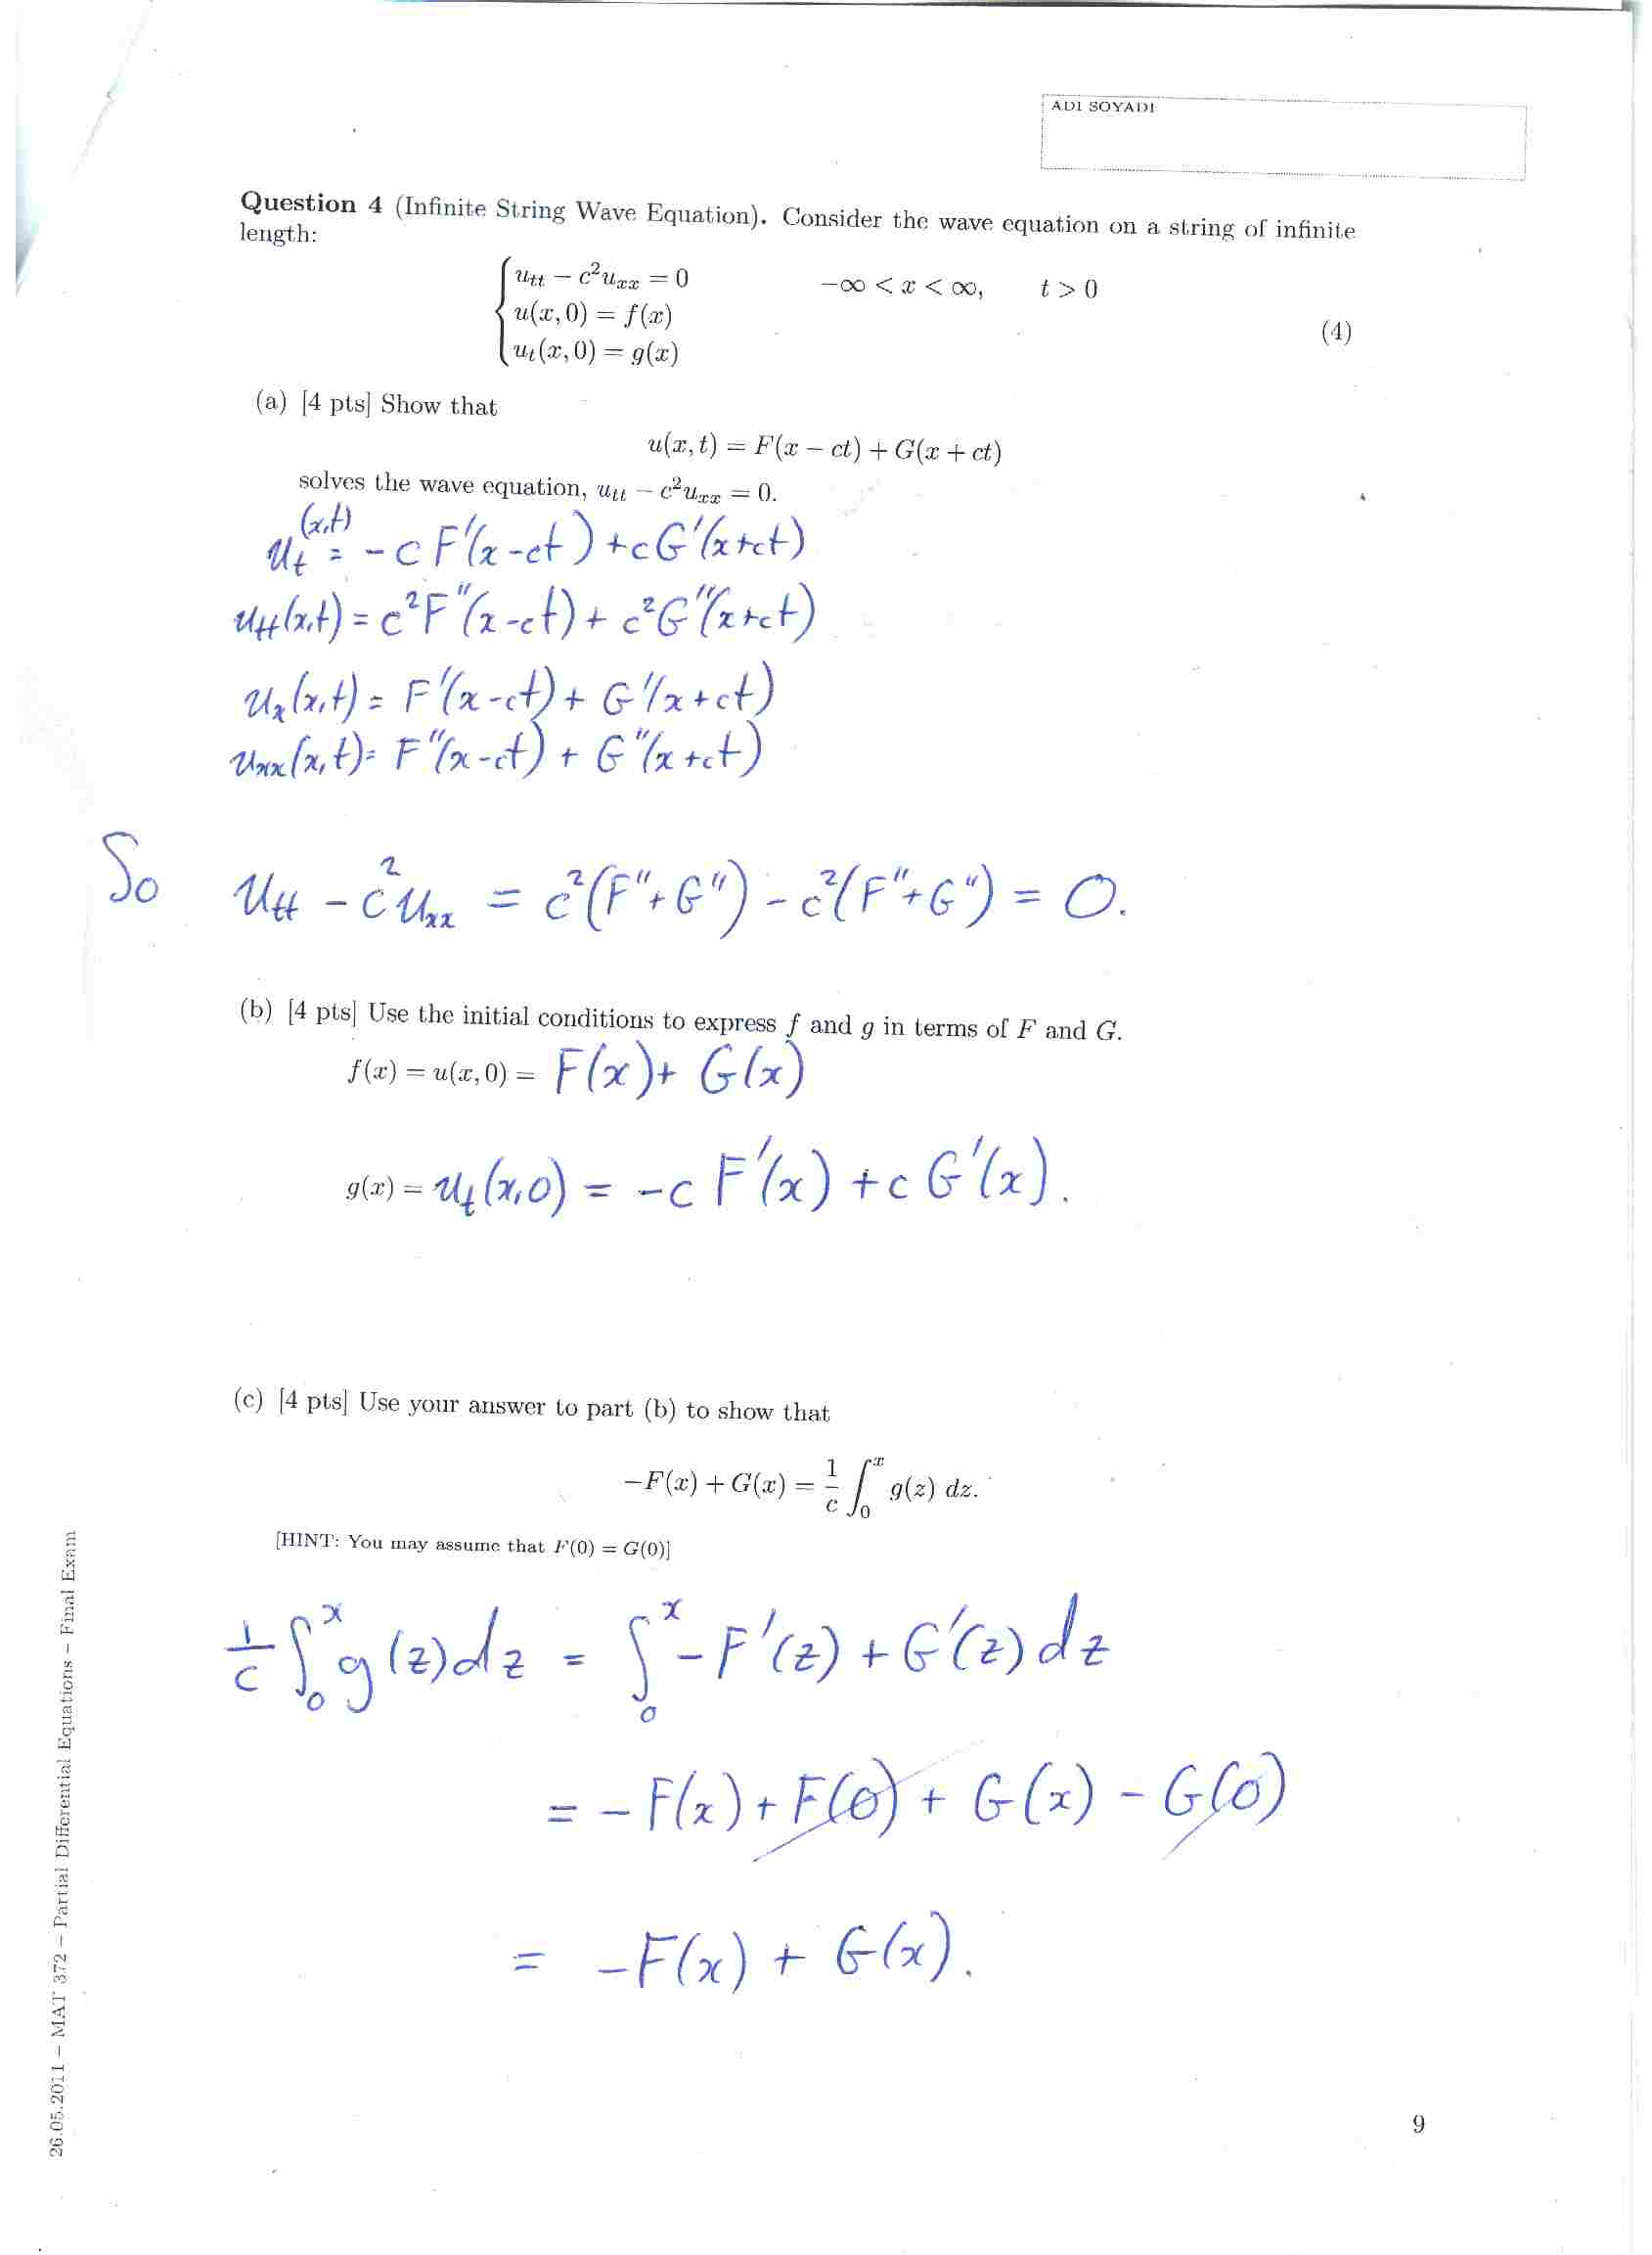 ADI SOYADI
Question 4 (Infinite String Wave Equation). Consider the wave equation on a string of infinite
length:
u_tt − c²u_xx = 0 −∞ < x < ∞, t > 0
u(x, 0) = f(x)
u_t(x, 0) = g(x)
(4)
(a) [4 pts] Show that
u(x, t) = F(x − ct) + G(x + ct)
solves the wave equation, u_tt − c²u_xx = 0.
u_t(x,t) = -c F'(x-ct) + c G'(x+ct)
u_tt(x,t) = c²F''(x-ct) + c²G''(x+ct)
u_x(x,t) = F'(x-ct) + G'(x+ct)
u_xx(x,t) = F''(x-ct) + G''(x+ct)
So u_tt - c²u_xx = c²(F''+G'') - c²(F''+G'') = 0.
(b) [4 pts] Use the initial conditions to express f and g in terms of F and G.
f(x) = u(x, 0) = F(x) + G(x)
g(x) = u_t(x,0) = -c F'(x) + c G'(x).
(c) [4 pts] Use your answer to part (b) to show that
−F(x) + G(x) = 1/c ∫₀ˣ g(z) dz.
[HINT: You may assume that F(0) = G(0)]
1/c ∫₀ˣ g(z)dz = ∫₀ˣ -F'(z) + G'(z) dz
= -F(x) + F(0) + G(x) - G(0)
= -F(x) + G(x).
26.05.2011 – MAT 372 – Partial Differential Equations – Final Exam
9